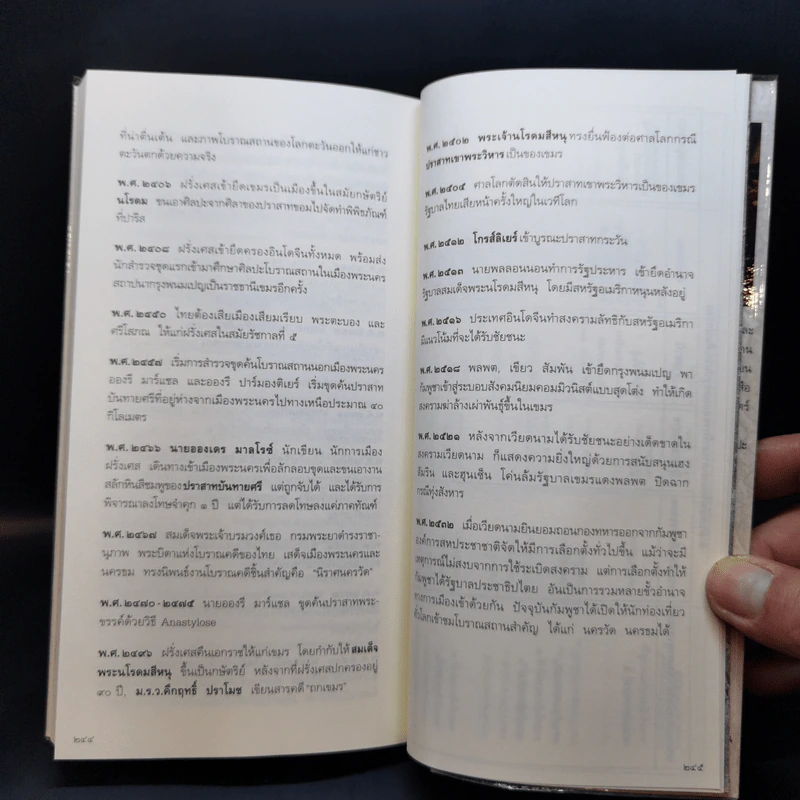 ที่น่าตื่นเต้น และภาพโบราณสถานของโลกตะวันออกให้แก่ชาว
ตะวันตกด้วยความจริง
พ.ศ.๒๔๐๖ ฝรั่งเศสเข้ายึดเขมรเป็นเมืองขึ้นในสมัยกษัตริย์
นโรดม ขนเอาศิลปะจากศิลาของปราสาทขอมไปจัดทำพิพิธภัณฑ์
ที่ปารีส
พ.ศ.๒๔๐๘ ฝรั่งเศสเข้ายึดครองอินโดจีนทั้งหมด พร้อมส่ง
นักสำรวจชุดแรกเข้ามาศึกษาศิลปะโบราณสถานในเมืองพระนคร
สถาปนากรุงพนมเปญเป็นราชธานีเขมรอีกครั้ง
พ.ศ.๒๔๕๐ ไทยต้องเสียเมืองเสียมเรียบ พระตะบอง และ
ศรีโสภณ ให้แก่ฝรั่งเศสในสมัยรัชกาลที่ ๕
พ.ศ.๒๔๕๗ เริ่มการสำรวจขุดค้นโบราณสถานนอกเมืองพระนคร
อองรี มาร์แชล และอองรี ปาร์มองติเยร์ เริ่มขุดค้นปราสาท
บันทายศรีที่อยู่ห่างจากเมืองพระนครไปทางเหนือประมาณ ๔๐
กิโลเมตร
พ.ศ.๒๔๖๖ นายอองเดร มาลโรซ์ นักเขียน นักการเมือง
ฝรั่งเศส เดินทางเข้าเมืองพระนครเพื่อลักลอบขุดและขนเอางาน
สลักหินสีชมพูของปราสาทบันทายศรี แต่ถูกจับได้ และได้รับการ
พิจารณาลงโทษจำคุก ๑ ปี แต่ได้รับการลดโทษลงแค่ภาคทัณฑ์
พ.ศ.๒๔๖๗ สมเด็จพระเจ้าบรมวงศ์เธอ กรมพระยาดำรงราชา-
นุภาพ พระบิดาแห่งโบราณคดีของไทย เสด็จเมืองพระนครและ
นครธม ทรงนิพนธ์งานโบราณคดีชิ้นสำคัญคือ “นิราศนครวัด”
พ.ศ.๒๔๗๐-๒๔๗๕ นายอองรี มาร์แชล ขุดค้นปราสาทพระ-
ขรรค์ด้วยวิธี Anastylose
พ.ศ.๒๔๙๖ ฝรั่งเศสคืนเอกราชให้แก่เขมร โดยกำกับให้สมเด็จ
พระนโรดมสีหนุ ขึ้นเป็นกษัตริย์ หลังจากที่ฝรั่งเศสปกครองอยู่
๙๐ ปี, ม.ร.ว.คึกฤทธิ์ ปราโมช เขียนสารคดี “ถกเขมร”
๒๔๔
พ.ศ.๒๕๐๒ พระเจ้านโรดมสีหนุ ทรงยื่นฟ้องต่อศาลโลกกรณี
ปราสาทเขาพระวิหาร เป็นของเขมร
พ.ศ.๒๕๐๕ ศาลโลกตัดสินให้ปราสาทเขาพระวิหารเป็นของเขมร
รัฐบาลไทยเสียหน้าครั้งใหญ่ในเวทีโลก
พ.ศ.๒๕๐๒ โกรส์ลิเยร์ เข้าบูรณะปราสาทกระวัน
พ.ศ.๒๕๑๓ นายพลลอนนอนทำการรัฐประหาร เข้ายึดอำนาจ
รัฐบาลสมเด็จพระนโรดมสีหนุ โดยมีสหรัฐอเมริกาหนุนหลังอยู่
พ.ศ.๒๕๑๖ ประเทศอินโดจีนทำสงครามลัทธิกับสหรัฐอเมริกา
มีแนวโน้มที่จะได้รับชัยชนะ
พ.ศ.๒๕๑๘ พลพต, เขียว สัมพัน เข้ายึดกรุงพนมเปญ พา
กัมพูชาเข้าสู่ระบอบสังคมนิยมคอมมิวนิสต์แบบสุดโต่ง ทำให้เกิด
สงครามฆ่าล้างเผ่าพันธุ์ขึ้นในเขมร
พ.ศ.๒๕๒๑ หลังจากเวียดนามได้รับชัยชนะอย่างเด็ดขาดใน
สงครามเวียดนาม ก็แสดงความยิ่งใหญ่ด้วยการสนับสนุนเฮง
สัมริน และฮุนเซ็น โค่นล้มรัฐบาลเขมรแดงพลพต ปิดฉาก
กรณีทุ่งสังหาร
พ.ศ.๒๕๓๒ เมื่อเวียดนามยินยอมถอนกองทหารออกจากกัมพูชา
องค์การสหประชาชาติจัดให้มีการเลือกตั้งทั่วไปขึ้น แม้ว่าจะมี
เหตุการณ์ไม่สงบจากการใช้ระเบิดสงคราม แต่การเลือกตั้งทำให้
กัมพูชาได้รัฐบาลประชาธิปไตย อันเป็นการรวมหลายขั้วอำนาจ
ทางการเมืองเข้าด้วยกัน ปัจจุบันกัมพูชาได้เปิดให้นักท่องเที่ยว
ทั่วโลกเข้าชมโบราณสถานสำคัญ ได้แก่ นครวัด นครธมได้
๒๔๕